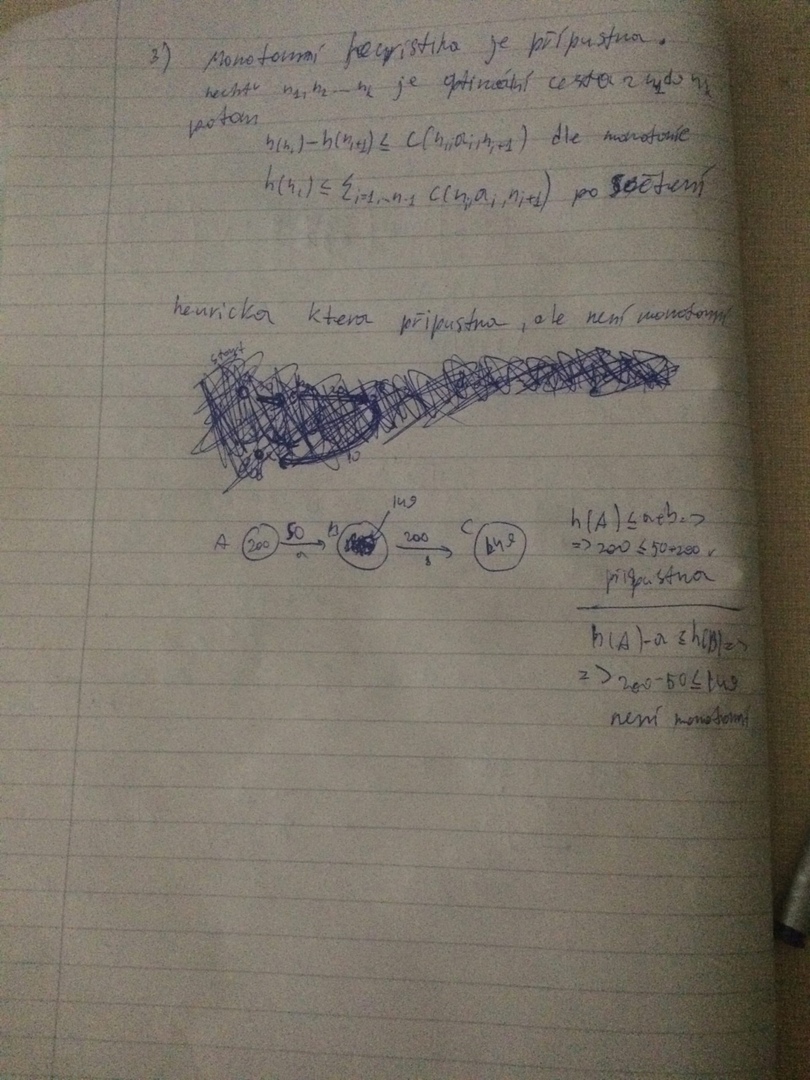 3) Monotonní heuristika je přípustna.
nechť n₁,n₂...nₖ je optimální cesta z
potom
h(nᵢ)-h(nᵢ₊₁) ≤ c(nᵢ,aᵢ,nᵢ₊₁) dle monotonie
h(n₁) ≤ Σᵢ₌₁..ₙ₋₁ c(nᵢ,aᵢ,nᵢ₊₁) po sčtení
heuricka ktera připustna, ale není monotonní
start
10
149
A 200 50 a B 200 b C
h(A) ≤ a+b =>
=> 200 ≤ 50+200
připustna
h(A)-a ≤ h(B) =>
=> 200-50 ≤ 149
není monotonní